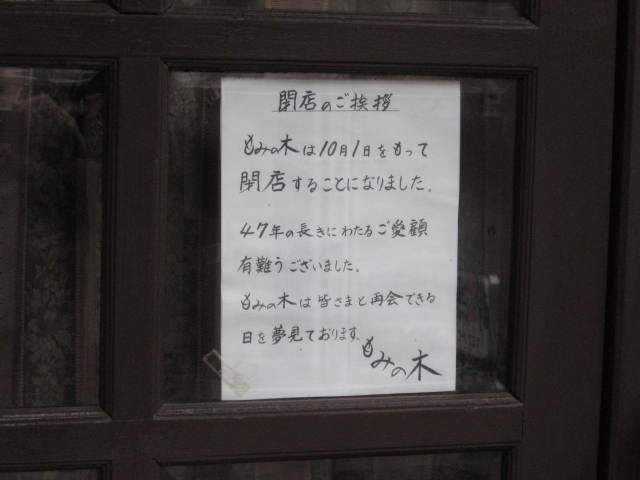 閉店のご挨拶
もみの木は10月1日をもって
閉店することになりました。
47年の長きにわたるご愛顧
有難うございました。
もみの木は皆さまと再会できる
日を夢見ております。
もみの木